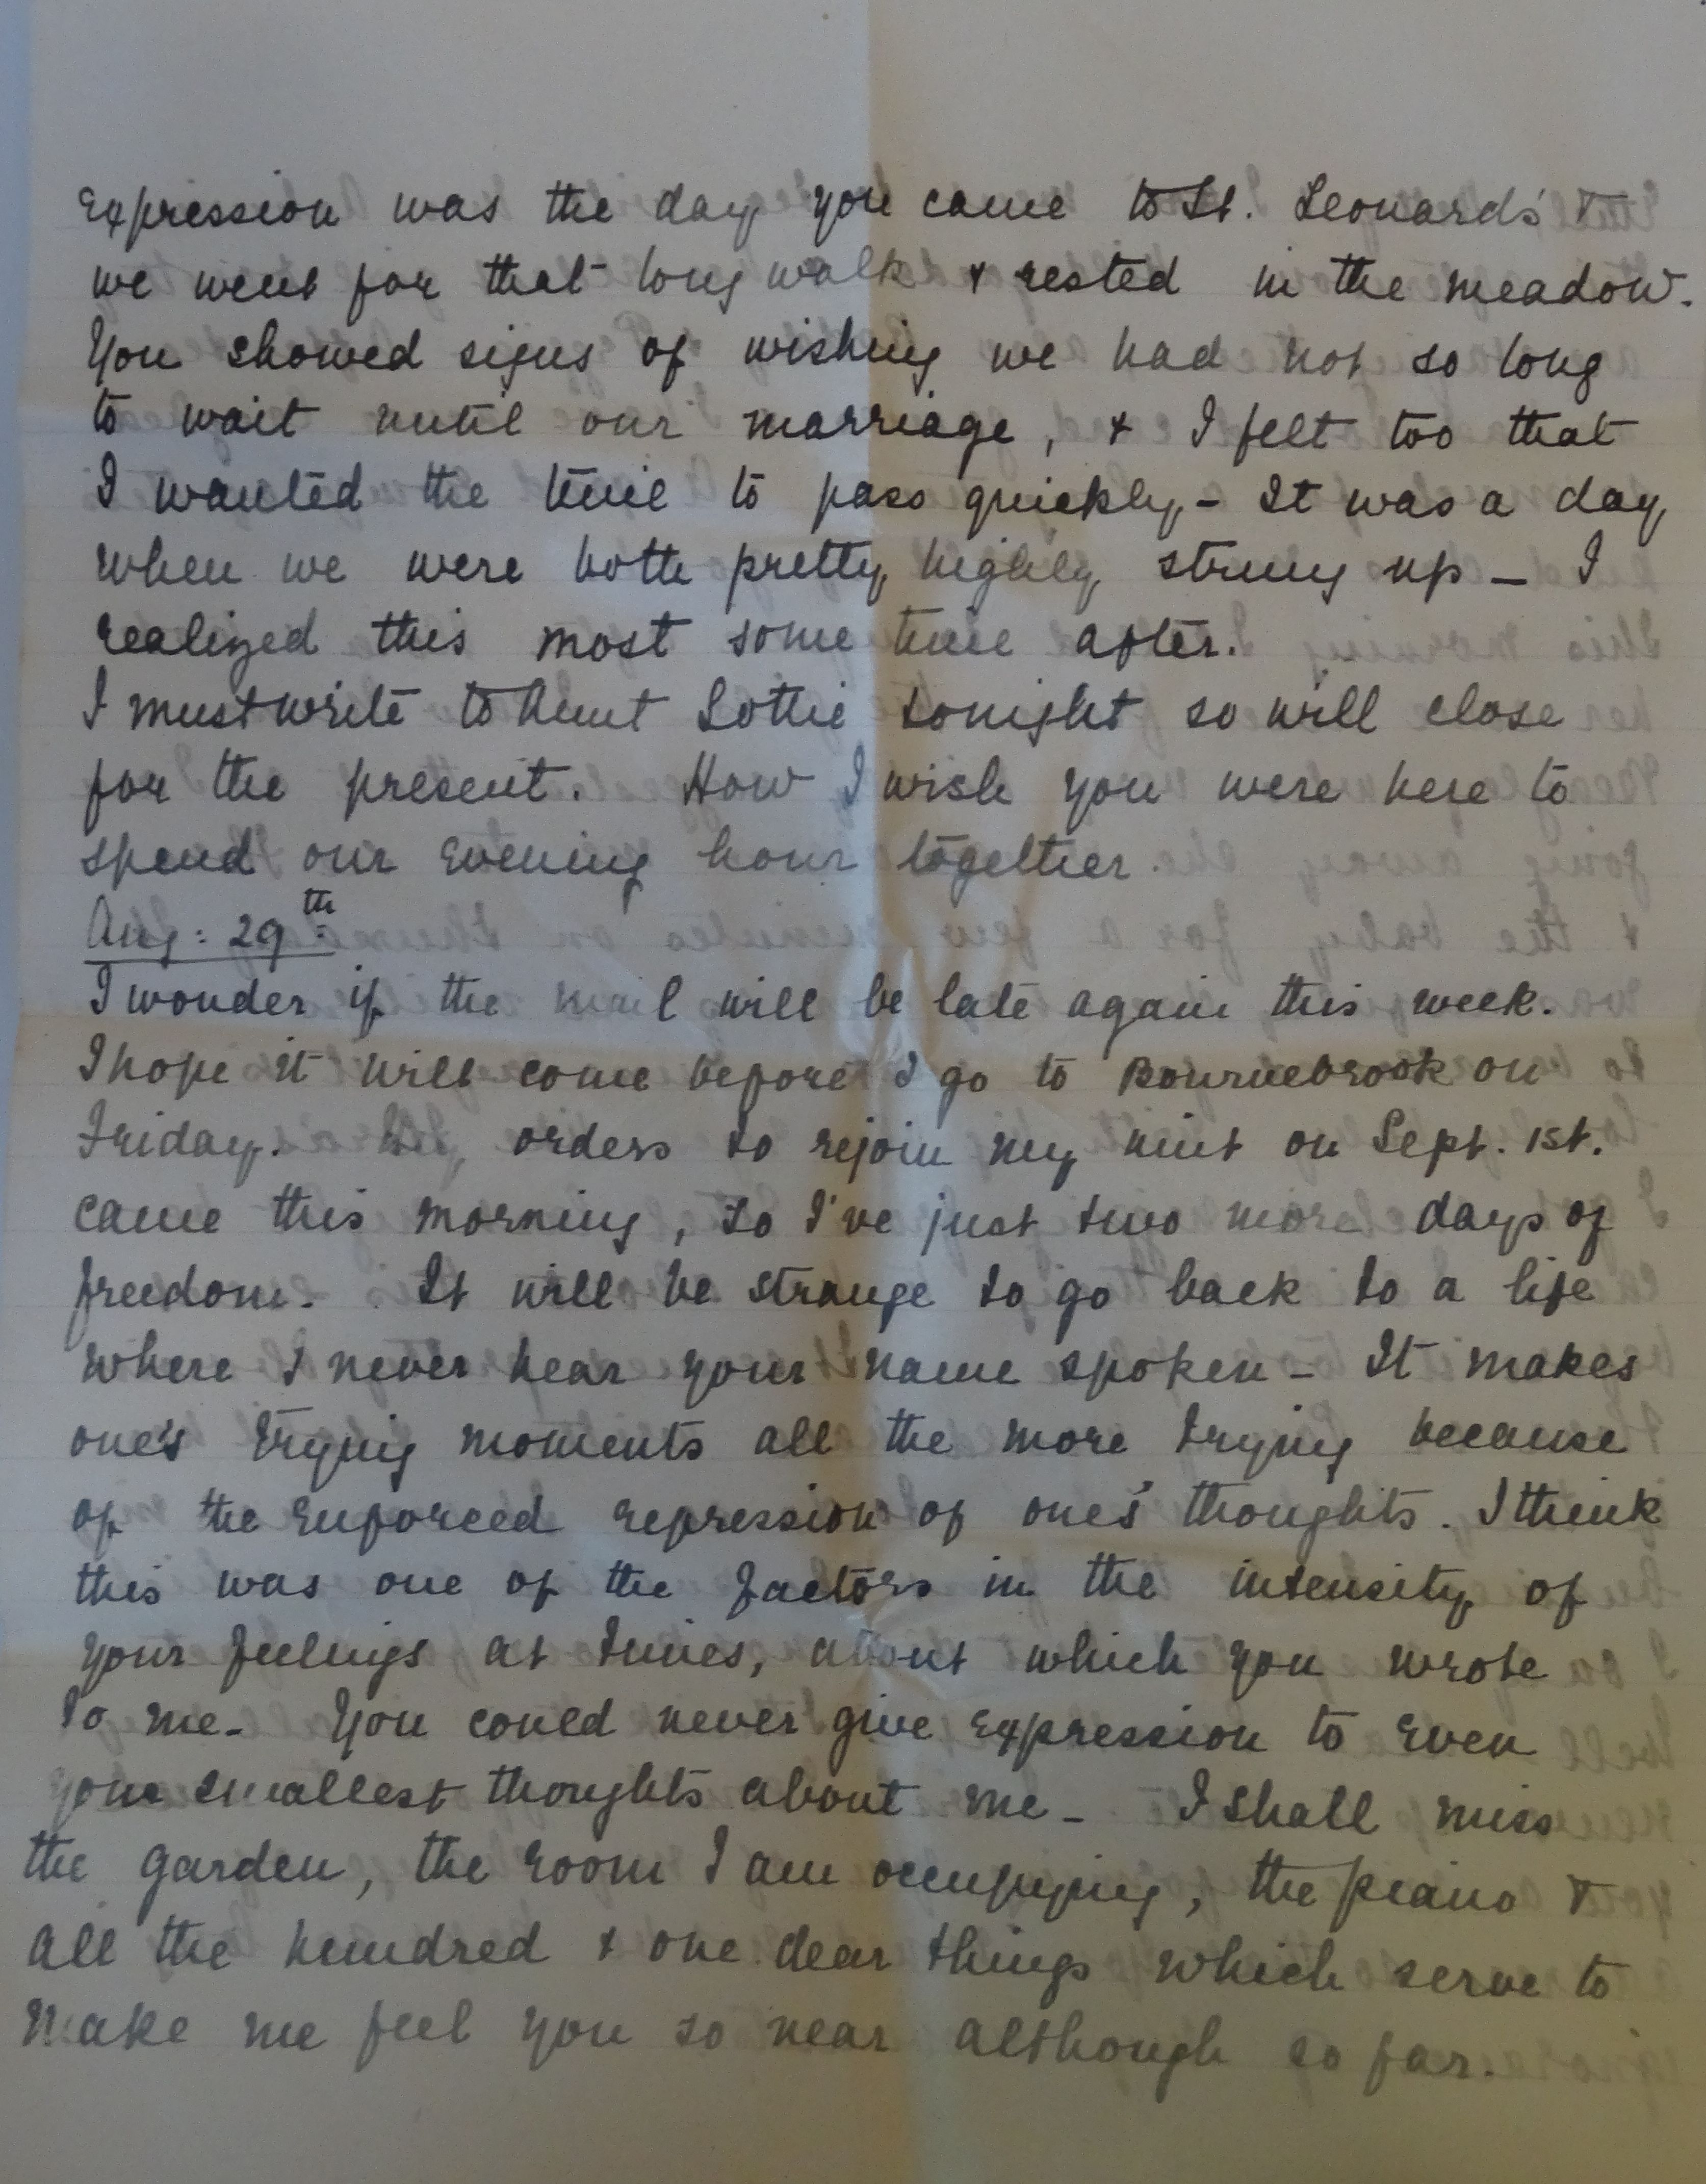 expression was the day you came to St. Leonard's &
we went for that long walk & rested in the meadow.
You showed signs of wishing we had not so long
to wait until our marriage, & I felt too that
I wanted the time to pass quickly - It was a day
when we were both pretty highly strung up - I
realized this most some time after.
I must write to Aunt Lottie tonight so will close
for the present. How I wish you were here to
spend our evening hour together.
Aug: 29th
I wonder if the mail will be late again this week.
I hope it will come before I go to Bournebrook on
Friday. My orders to rejoin my unit on Sept. 1st.
came this morning, so I've just two more days of
freedom. It will be strange to go back to a life
where I never hear your name spoken - It makes
one's trying moments all the more trying because
of the enforced repression of one's thoughts. I think
this was one of the factors in the intensity of
your feelings at times, about which you wrote
to me - You could never give expression to even
your smallest thoughts about me - I shall miss
the garden, the room I am occupying, the piano &
all the hundred & one dear things which serve to
make me feel you so near although so far.